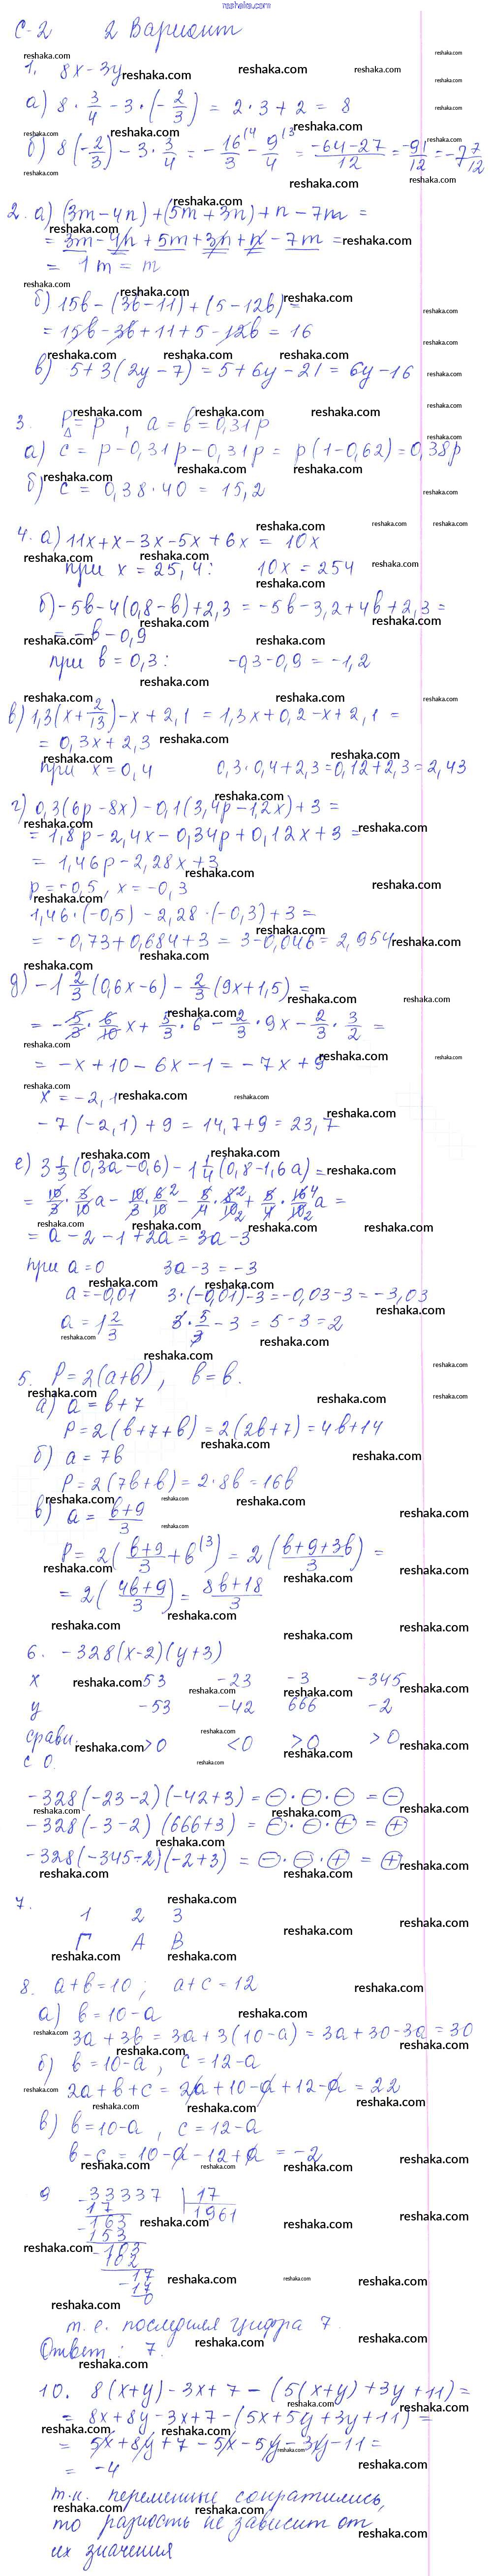 reshaka.com
С-2 2 Вариант
1. 8x - 3y
а) 8 · 3/4 - 3 · (-2/3) = 2 · 3 + 2 = 8
б) 8(-2/3) - 3 · 3/4 = -16/3 (4 - 9/4 (3 = (-64-27)/12 = -91/12 = -7 7/12
2. а) (3m - 4n) + (5m + 3n) + n - 7m =
= 3m - 4n + 5m + 3n + n - 7m =
= 1m = m
б) 15b - (3b - 11) + (5 - 12b) =
= 15b - 3b + 11 + 5 - 12b = 16
в) 5 + 3(2y - 7) = 5 + 6y - 21 = 6y - 16
3. P△ = p, a = b = 0,31p
а) c = p - 0,31p - 0,31p = p(1 - 0,62) = 0,38p
б) c = 0,38 · 40 = 15,2
4. а) 11x + x - 3x - 5x + 6x = 10x
при x = 25,4: 10x = 254
б) -5b - 4(0,8 - b) + 2,3 = -5b - 3,2 + 4b + 2,3 =
= -b - 0,9
при b = 0,3: -0,3 - 0,9 = -1,2
в) 1,3(x + 2/13) - x + 2,1 = 1,3x + 0,2 - x + 2,1 =
= 0,3x + 2,3
при x = 0,4 0,3 · 0,4 + 2,3 = 0,12 + 2,3 = 2,43
г) 0,3(6p - 8x) - 0,1(3,4p - 1,2x) + 3 =
= 1,8p - 2,4x - 0,34p + 0,12x + 3 =
= 1,46p - 2,28x + 3
p = -0,5, x = -0,3
1,46 · (-0,5) - 2,28 · (-0,3) + 3 =
= -0,73 + 0,684 + 3 = 3 - 0,046 = 2,954
д) -1 2/3 (0,6x - 6) - 2/3 (9x + 1,5) =
= -5/3 · 6/10 x + 5/3 · 6 - 2/3 · 9x - 2/3 · 3/2 =
= -x + 10 - 6x - 1 = -7x + 9
x = -2,1
-7(-2,1) + 9 = 14,7 + 9 = 23,7
е) 3 1/3 (0,3a - 0,6) - 1 1/4 (0,8 - 1,6a) =
= 10/3 · 3/10 a - 10/3 · 6/10 2 - 5/4 · 8/10 2 2 + 5/4 · 16/10 4 2 a =
= a - 2 - 1 + 2a = 3a - 3
при a = 0 3a - 3 = -3
a = -0,01 3 · (-0,01) - 3 = -0,03 - 3 = -3,03
a = 1 2/3 3 · 5/3 - 3 = 5 - 3 = 2
5. P = 2(a + b), b = b.
а) a = b + 7
P = 2(b + 7 + b) = 2(2b + 7) = 4b + 14
б) a = 7b
P = 2(7b + b) = 2 · 8b = 16b
в) a = (b+9)/3
P = 2((b+9)/3 + b (3) = 2((b+9+3b)/3) =
= 2((4b+9)/3) = (8b+18)/3
6. -328(x-2)(y+3)
x 53 -23 -3 -345
y -53 -42 666 -2
срави. >0 <0 >0 >0
с 0.
-328(-23-2)(-42+3) = ⊖ · ⊖ · ⊖ = ⊖
-328(-3-2)(666+3) = ⊖ · ⊖ · ⊕ = ⊕
-328(-345-2)(-2+3) = ⊖ · ⊖ · ⊕ = ⊕
7.
1 2 3
Г А В
8. a + b = 10; a + c = 12
а) b = 10 - a
3a + 3b = 3a + 3(10 - a) = 3a + 30 - 3a = 30
б) b = 10 - a, c = 12 - a
2a + b + c = 2a + 10 - a + 12 - a = 22
в) b = 10 - a, c = 12 - a
b - c = 10 - a - 12 + a = -2
9 -33337 | 17
17 1961
-163
153
-103
102
-17
17
0
т.е. последняя цифра 7.
Ответ: 7.
10. 8(x+y) - 3x + 7 - (5(x+y) + 3y + 11) =
= 8x + 8y - 3x + 7 - (5x + 5y + 3y + 11) =
= 5x + 8y + 7 - 5x - 5y - 3y - 11 =
= -4
т.к. переменные сократились,
то разность не зависит от
их значения